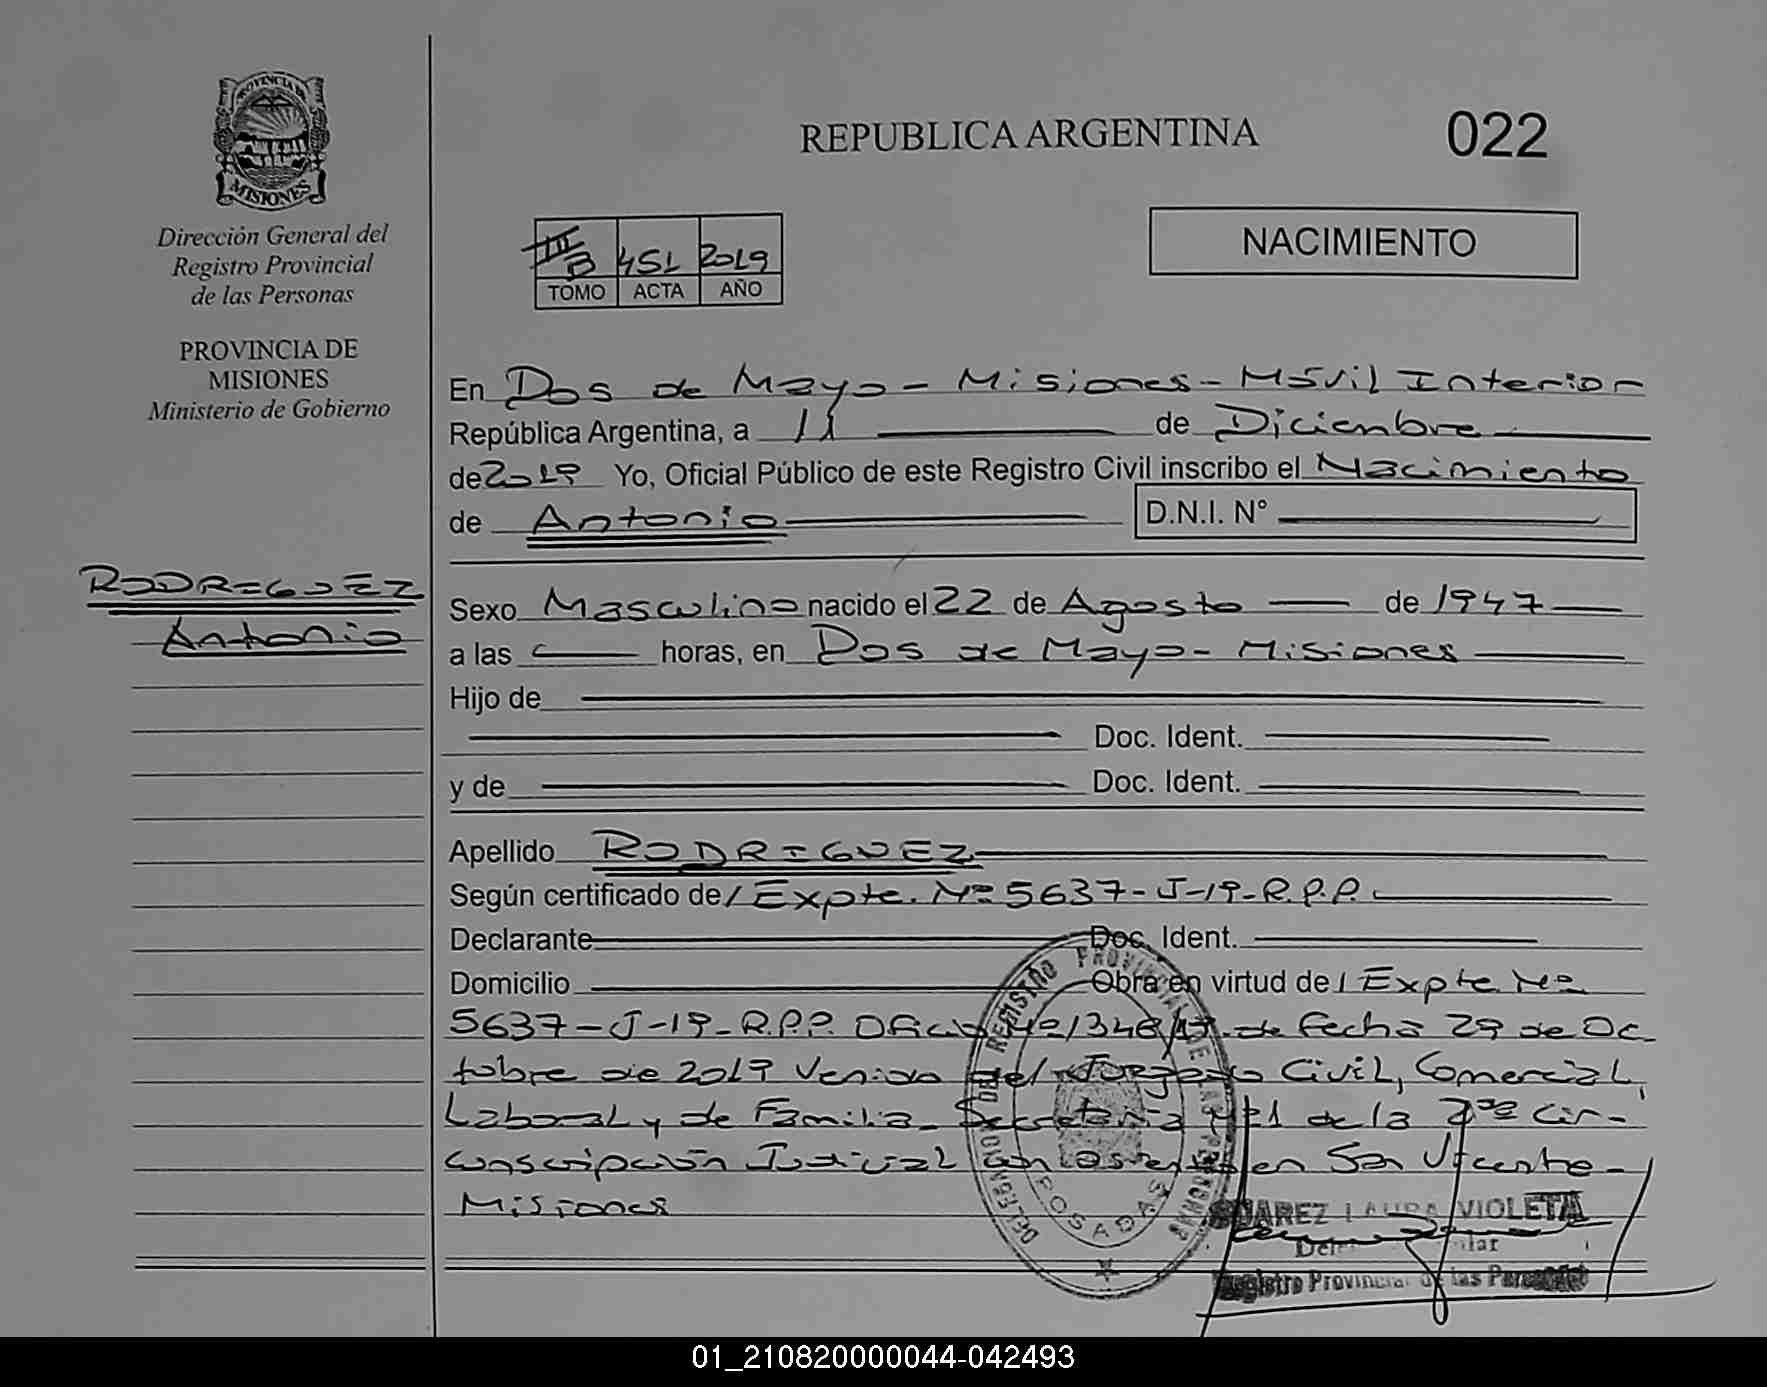 PROVINCIA DE
MISIONES
Dirección General del
Registro Provincial
de las Personas
PROVINCIA DE
MISIONES
Ministerio de Gobierno
RODRIGUEZ
Antonio
REPUBLICA ARGENTINA
022
NACIMIENTO
III B 451 2019
TOMO ACTA AÑO
En Dos de Mayo - Misiones - Móvil Interior
República Argentina, a 11 de Diciembre
de 2019 Yo, Oficial Público de este Registro Civil inscribo el Nacimiento
de Antonio D.N.I. N°
Sexo Masculino nacido el 22 de Agosto de 1947
a las horas, en Dos de Mayo - Misiones
Hijo de
Doc. Ident.
y de Doc. Ident.
Apellido RODRIGUEZ
Según certificado de / Expte. Nº 5637-J-19-R.P.P.
Declarante Doc. Ident.
Domicilio Obra en virtud de / Expte Nº
5637-J-19-R.P.P. Oficio Nº 1348/19 de fecha 29 de Oc-
tubre de 2019 Venido del Juzgado Civil, Comercial,
Laboral y de Familia - Secretaría Nº1 de la 2da Cir-
cunscripción Judicial con asiento en San Vicente -
Misiones
DEL REGISTRO PROVINCIAL DE LAS PERSONAS
POSADAS
SUAREZ LAURA VIOLETA
Registro Provincial de las Personas
01_210820000044-042493